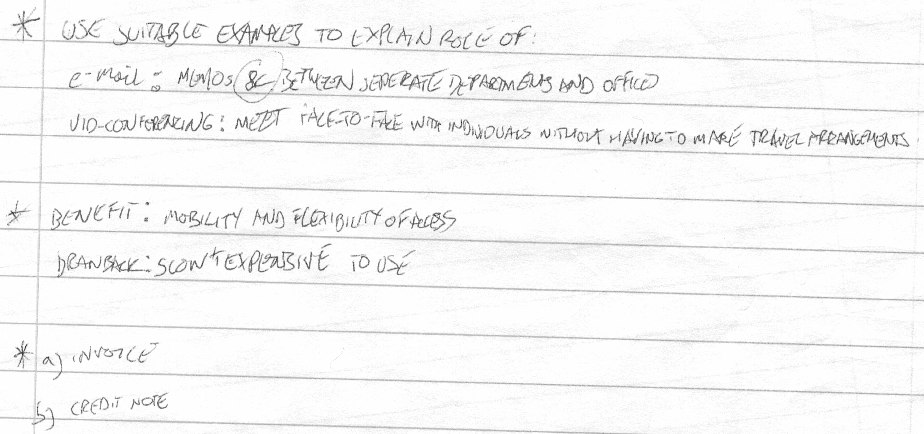 * USE SUITABLE EXAMPLES TO EXPLAIN ROLE OF:
e-mail: MEMOS &C BETWEEN SEPERATE DEPARTMENTS AND OFFICES
VID-CONFERENCING: MEET FACE-TO-FACE WITH INDIVIDUALS WITHOUT HAVING TO MAKE TRAVEL ARRANGEMENTS.
* BENEFIT: MOBILITY AND FLEXIBILITY OF ACCESS
DRAWBACK: SLOW + EXPENSIVE TO USE
* a) INVOICE
b) CREDIT NOTE